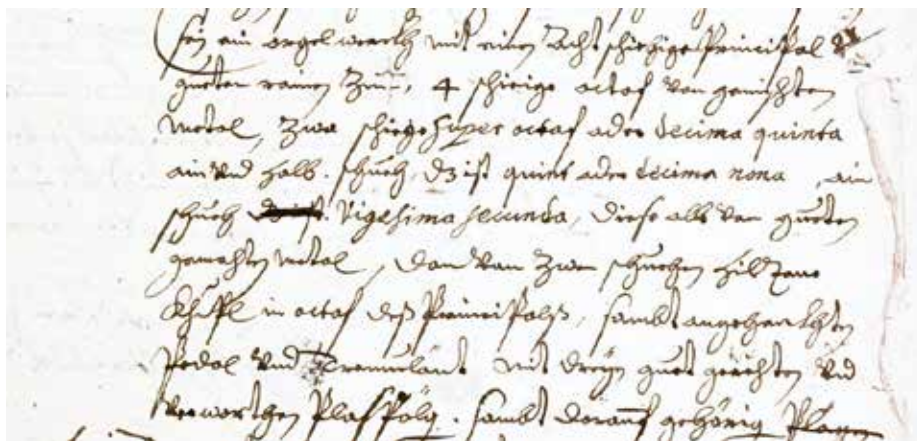 sein ain orgelwerckh mit einen Acht schichigen Principal
gueten rainen Zinn, 4 schiige octaf von gemischten
Metal, Zwe schiege super octaf oder decima quinta
ain und halb schuch, dz ist quint oder decima nona, ain
schuch Vigesima secunda, diese alls von gueten
Metal, dan von Zwen schuchen hilzene
Khupl in octaf deß Principalß, sambt angehenckhten
Pedal und Tremulant mit dreyen guet und
verworthen Plaspölg. sambt darauf gehörig